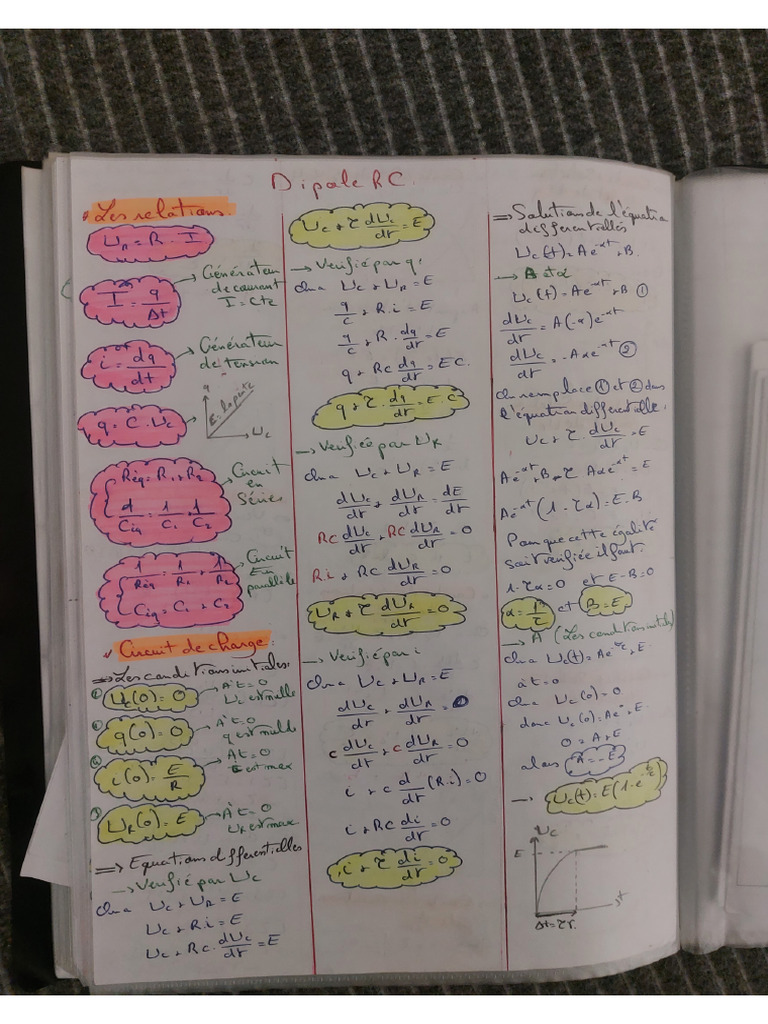 Dipole RC.
Les relations.
U_R = R . I
I = q/Δt → Générateur de courant I = Cte
i = dq/dt → Générateur de tension
q = C . U_c
q
U_c
Réq = R1 + R2
1/Ciq = 1/C1 + 1/C2
Circuit en Séries
1/Réq = 1/R1 + 1/R2
Ciq = C1 + C2
Circuit En parallèle
Circuit de charge :
⇒ Les conditions initiales:
U_c(0) = 0 → A t = 0 U_c est nulle
q(0) = 0 → A t = 0 q est nulle
i(0) = E/R → A t = 0 I est max
U_R(0) = E → A t = 0 U_R est max
⇒ Equations différentielles
→ Vérifié par U_c
On a U_c + U_R = E
U_c + R.i = E
U_c + RC . dU_c/dt = E
U_c + τ dU_c/dt = E
→ Vérifié par q:
On a U_c + U_R = E
q/c + R.i = E
q/c + R . dq/dt = E
q + RC dq/dt = E C.
q + τ . dq/dt = E . C
→ Vérifiée par U_R
On a U_c + U_R = E
dU_c/dt + dU_R/dt = dE/dt
RC dU_c/dt + RC dU_R/dt = 0
R.i + RC dU_R/dt = 0
U_R + τ dU_R/dt = 0
→ Vérifié par i
On a U_c + U_R = E
dU_c/dt + dU_R/dt = 0
C dU_c/dt + C dU_R/dt = 0
i + c d/dt (R.i) = 0
i + RC di/dt = 0
i + τ di/dt = 0
⇒ Solution de l'équation
différentielles
U_c(t) = A e^-αt + B.
→ A et α
U_c(t) = A e^-αt + B ①
dU_c/dt = A(-α) e^-αt
dU_c/dt = -A α e^-αt ②
On remplace ① et ② dans
l'équation différentielle:
U_c + τ . dU_c/dt = E
A e^-αt + B - τ A α e^-αt = E
A e^-αt (1 - τα) = E - B
Pour que cette égalité
soit vérifiée il faut:
1 - τα = 0 et E - B = 0
α = 1/τ et B = E
→ A (Les conditions initiales)
On a U_c(t) = A e^-t/τ + E
à t = 0
On a U_c(0) = 0
donc U_c(0) = A e° + E
0 = A + E
alors A = -E
→ U_c(t) = E (1 - e^-t/τ)
U_c
E
t
Δt = 5τ